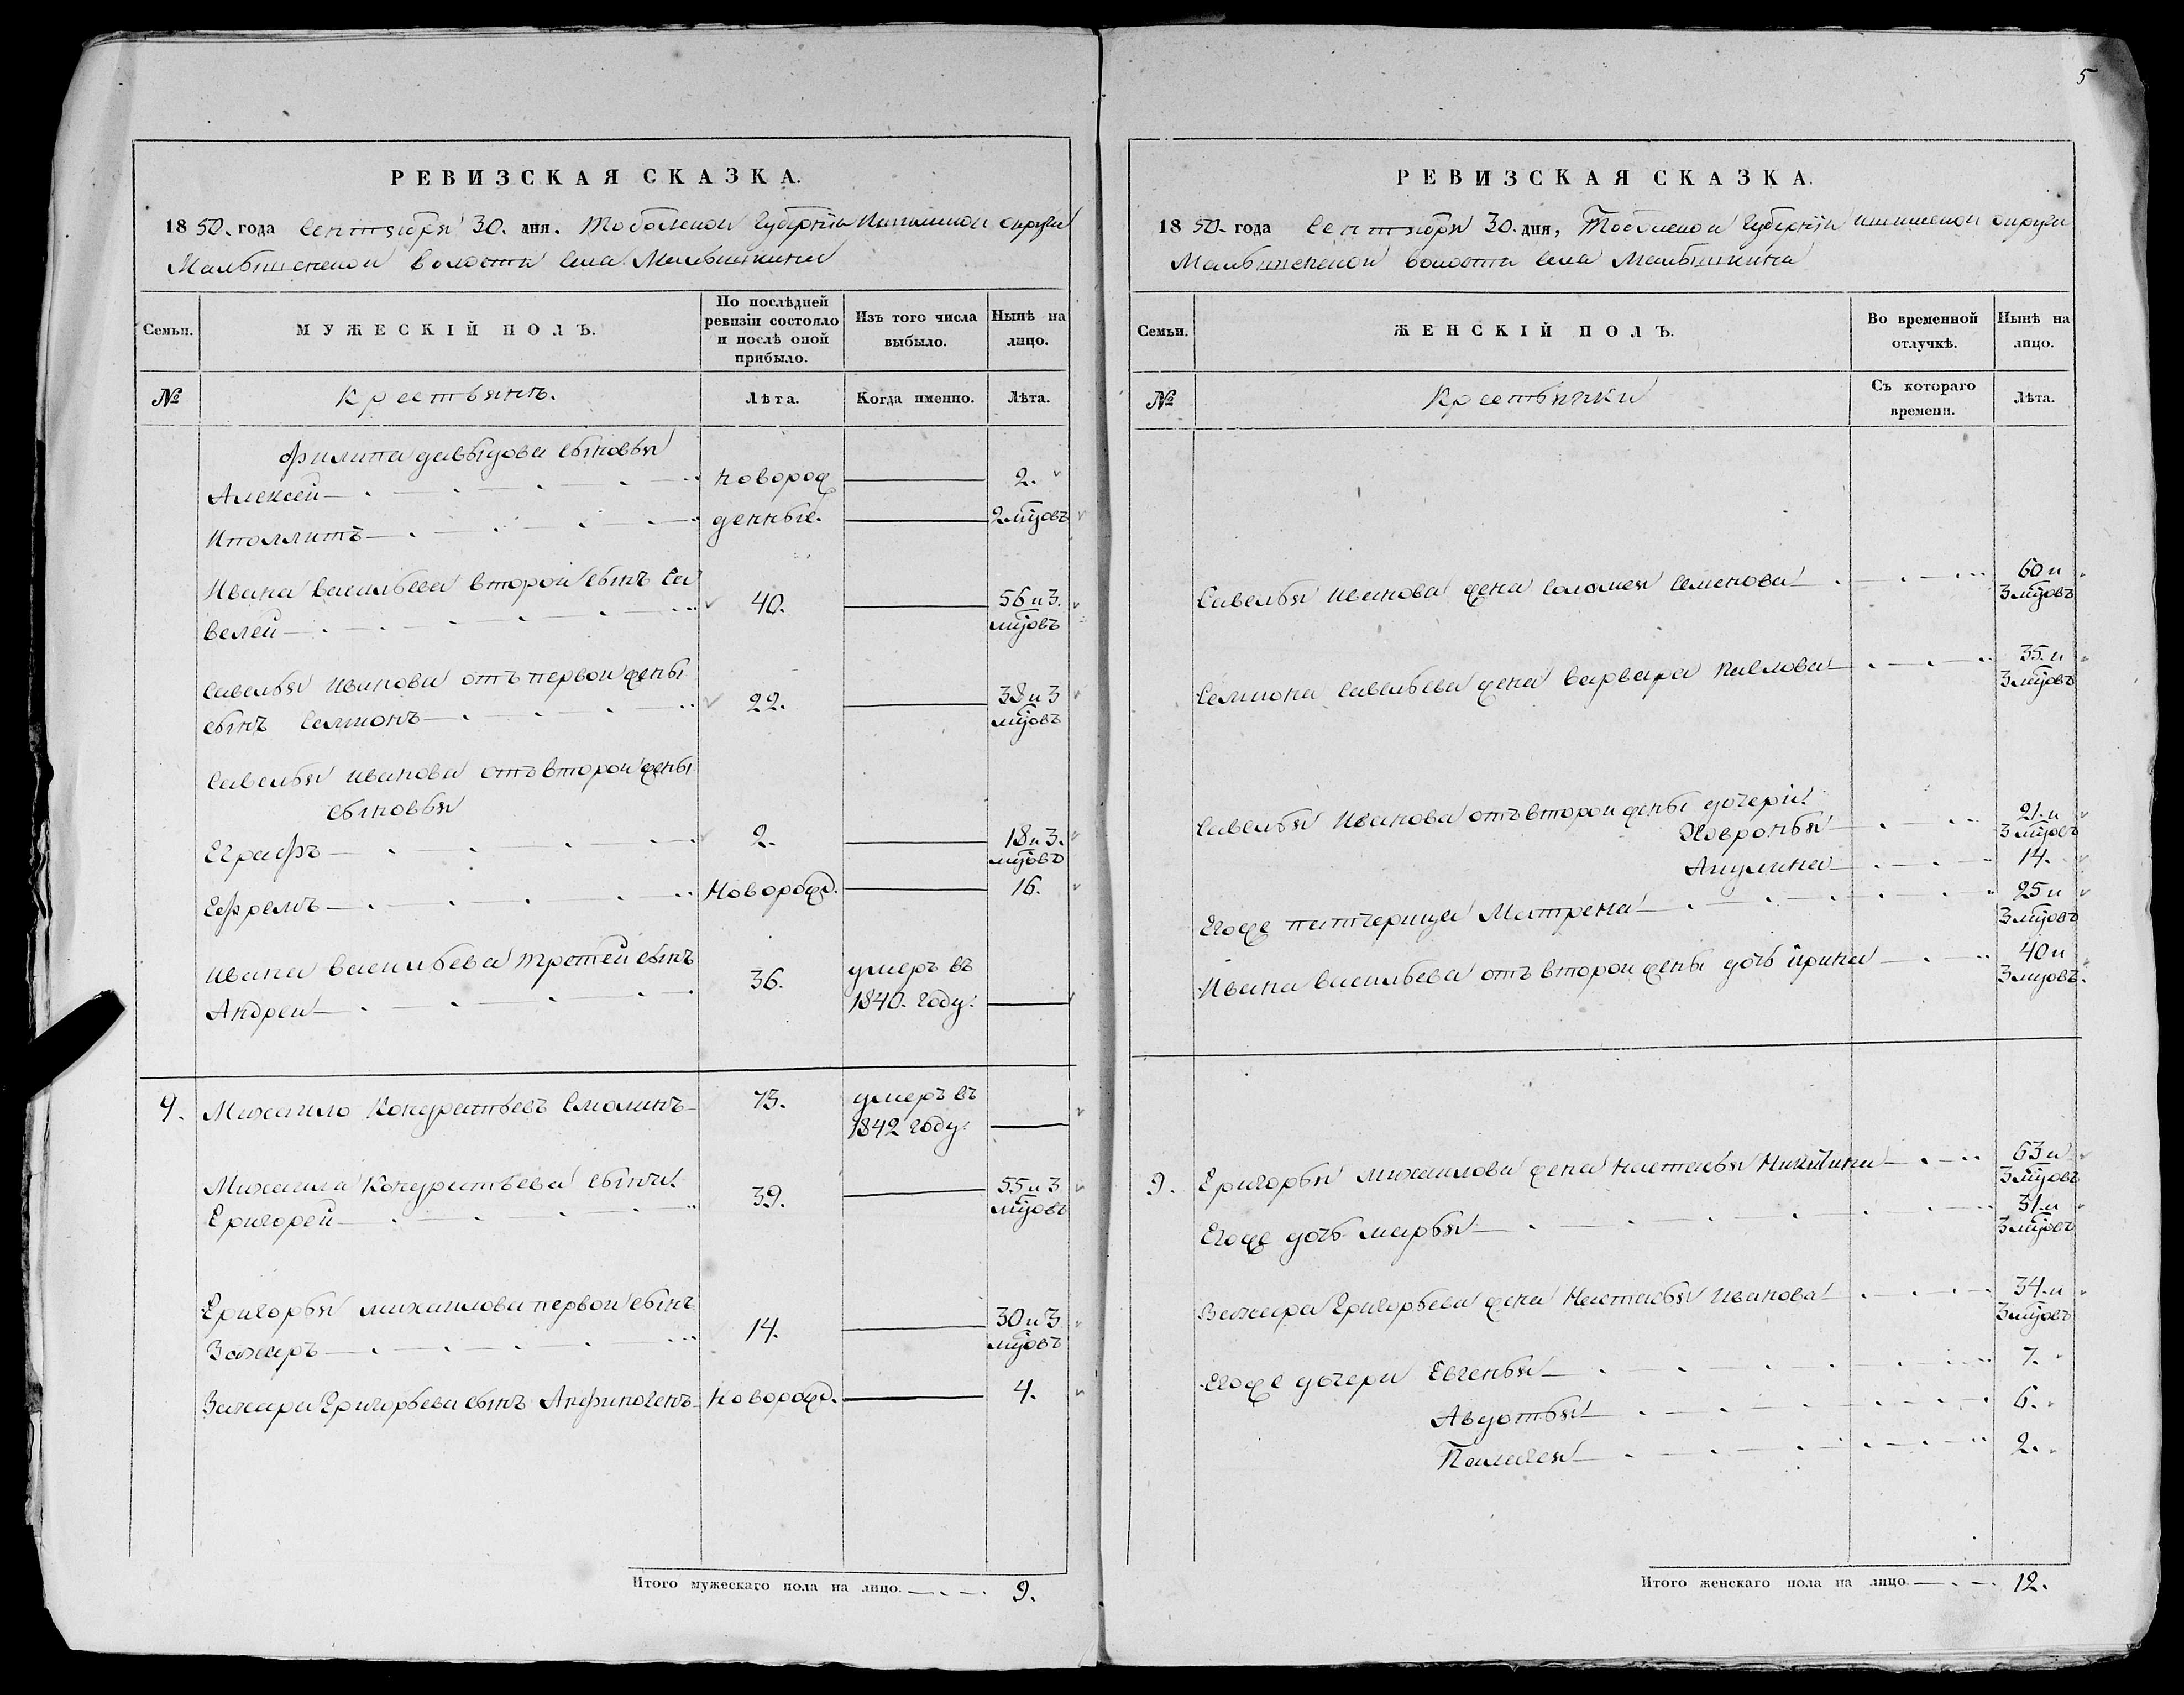 РЕВИЗСКАЯ СКАЗКА.
1850. года Сентября 30. дня. Тобольской Губерніи Ишимской округи
Малышенской волости села Малышкина
Семьи.
МУЖЕСКІЙ ПОЛЪ.
По послѣдней ревизіи состояло и послѣ оной прибыло.
Изъ того числа выбыло.
Нынѣ на лицо.
№
Крестьянъ.
Лѣта.
Когда именно.
Лѣта.
Филипа давыдова сыновья
Алексей новорож 2.
Иполлитъ денные. 2 мцовъ
Ивана васильева второй сынъ Са
велей 40. 56 и 3. мцовъ
Савелья иванова отъ первой жены
сынъ Семионъ 22. 38 и 3 мцовъ
Савелья иванова отъ второй жены
сыновья
Еграфъ 2. 18 и 3. мцовъ
Ефремъ Новорожд. 16.
Ивана васильева третей сынъ
Андрей 36. умеръ въ 1840. году.
9. Михаило Кондратьевъ Смолинъ 75. умеръ въ 1842 году.
Михаила Кондратьева сынъ
Григорей 39. 55 и 3 мцовъ
Григорья михаилова первой сынъ
Захаръ 14. 30 и 3 мцовъ
Захара Григорьева сынъ Анфиногенъ Новорожд. 4.
Итого мужескаго пола на лицо. 9.
5
РЕВИЗСКАЯ СКАЗКА.
1850. года Сентября 30. дня, Тобольской Губерніи ишимской округи
Малышенской волости села Малышкина
Семьи.
ЖЕНСКІЙ ПОЛЪ.
Во временной отлучкѣ.
Нынѣ на лицо.
№
Крестьянки
Съ котораго времени.
Лѣта.
Савелья иванова жена Соломея Семенова 60 и 3 мцовъ
Семиона савельева жена варвара Павлова 35. и 3 мцовъ
Савелья Иванова отъ второй жены дочери
Ховронья 21. и 3 мцовъ
Акулина 14.
Егоже патчерица Матрена 25 и 3 мцовъ
Ивана васильева отъ второй жены дочь ирина 40 и 3 мцовъ.
9. Григорья михаилова жена Настасья Никитина 63 и 3 мцовъ
Егоже дочь марья 31. и 3 мцовъ
Захара Григорьева жена Настасья иванова 34. и 3 мцовъ
Егоже дочери Евгенья 7.
Авдотья 6.
Пелагея 2.
Итого женскаго пола на лицо. 12.